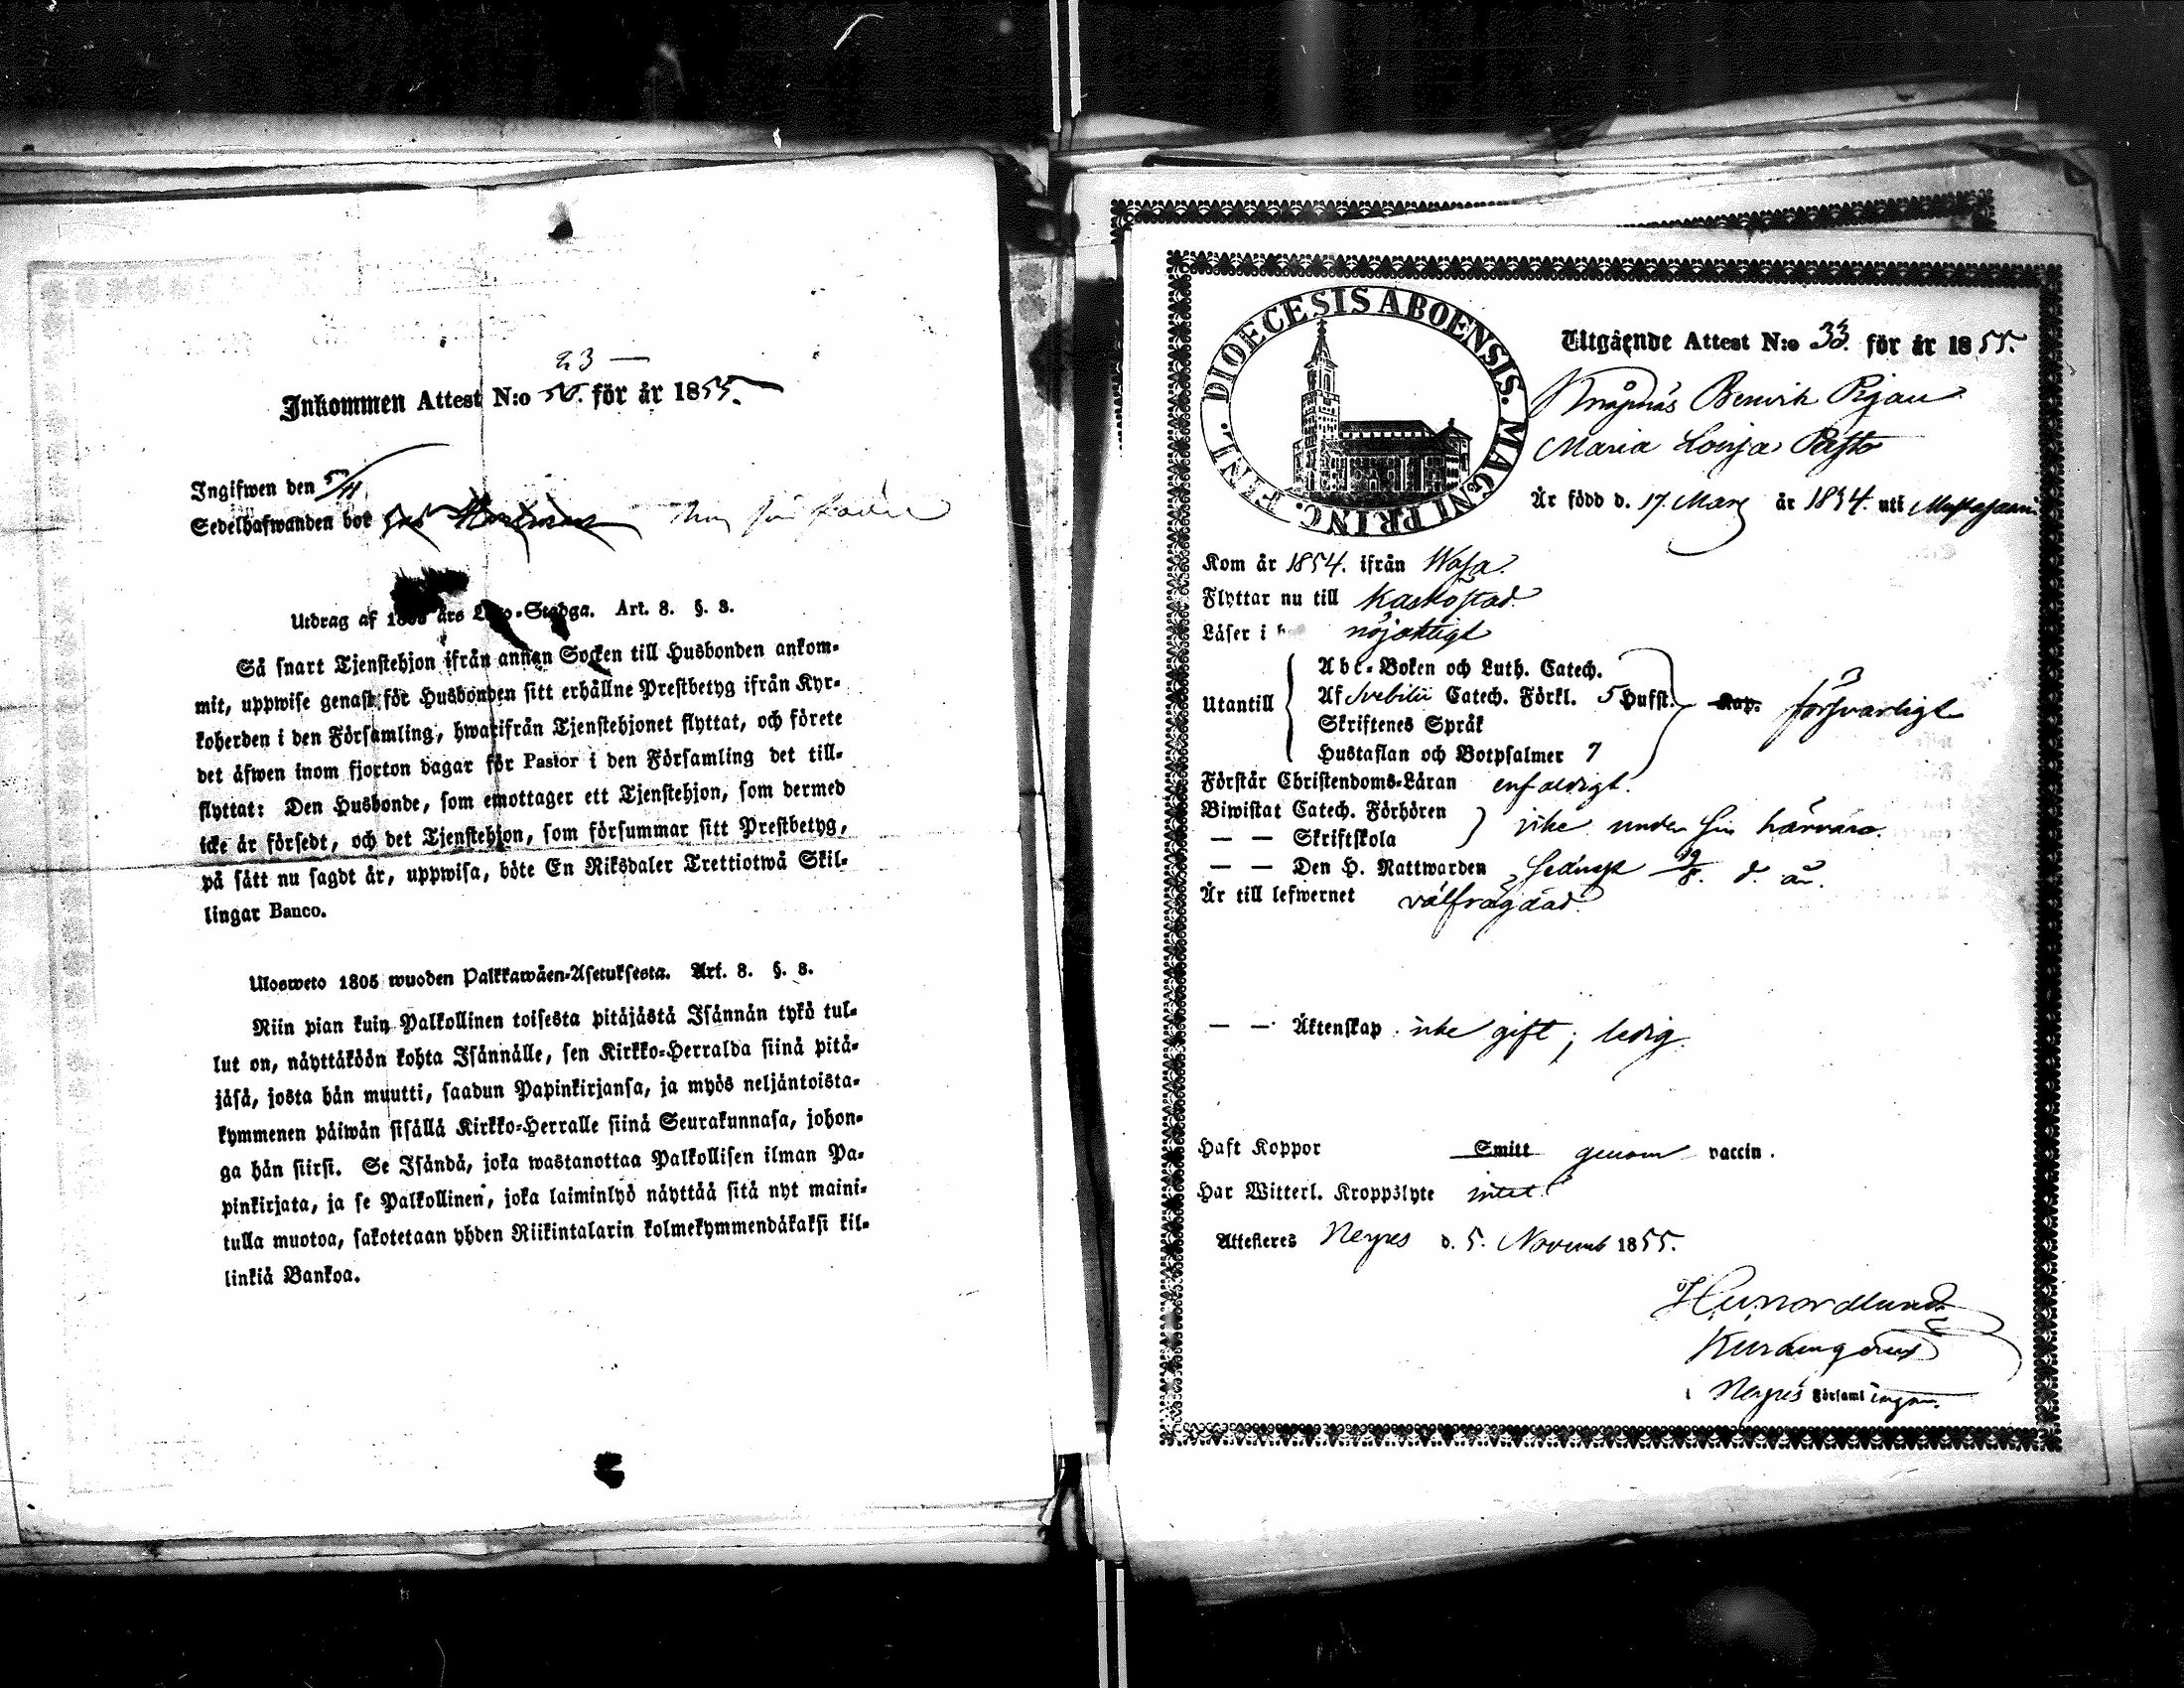 23 —
Inkommen Attest N:o för år 1855.
Ingifwen den 5/11
Sedelhafwanden bor
Utdrag af års Stadga. Art. 8. §. 3.
Så snart Tjenstehjon ifrån annan Socken till Husbonden ankom-
mit, uppwise genast för Husbonden sitt erhållne Prestbetyg ifrån Kyr-
koherden i den Församling, hwarifrån Tjenstehjonet flyttat, och förete
det äfwen inom fjorton dagar för Pastor i den Församling det till-
flyttat: Den Husbonde, som emottager ett Tjenstehjon, som dermed
icke är försedt, och det Tjenstehjon, som försummar sitt Prestbetyg,
på sätt nu sagdt är, uppwisa, böte En Riksdaler Trettiotwå Skil-
lingar Banco.
Ulosweto 1805 wuoden Palkkawäen-Asetuksesta. Art. 8. §. 3.
Niin pian kuin Palkollinen toisesta pitäjästä Isännän tykö tul-
lut on, näyttäköön kohta Isännälle, sen Kirkko-Herralda siinä pitä-
jäsä, josta hän muutti, saadun Papinkirjansa, ja myös neljäntoista-
kymmenen päiwän sisällä Kirkko-Herralle siinä Seurakunnasa, johon-
ga hän siirsi. Se Isändä, joka wastanottaa Palkollisen ilman Pa-
pinkirjata, ja se Palkollinen, joka laiminlyö näyttää sitä nyt maini-
tulla muotoa, sakotetaan yhden Riikintalarin kolmekymmendäkaksi kil-
linkiä Bankoa.
DIOECESIS ABOENSIS. MAGNI PRINC. FINL.
Utgående Attest N:o 33. för år 1855.
Pigan
Maria Lovisa
Är född d. 17. Mars år 1834. uti
Kom år 1854. ifrån Wasa.
Flyttar nu till Kaskö stad.
Läser i nöjaktigt
Utantill
Abc-Boken och Luth. Catech.
Af Svebilii Catech. Förkl. 5 Hufst. Kap. försvarligt
Skriftenes Språk
Hustaflan och Botpsalmer 7
Förstår Christendoms-Läran enfaldigt.
Biwistat Catech. Förhören
— — Skriftskola icke under sin härvaro.
— — Den H. Nattwarden senast 19/8. d. år.
Är till lefwernet välfrägdad.
— — Äktenskap icke gift; ledig.
Haft Koppor Smitt genom vaccin.
Har Witterl. Kroppslyte intet.
Attesteres Nerpes d. 5. Novemb 1855.
Nordlund
i Nerpes Församlingen.